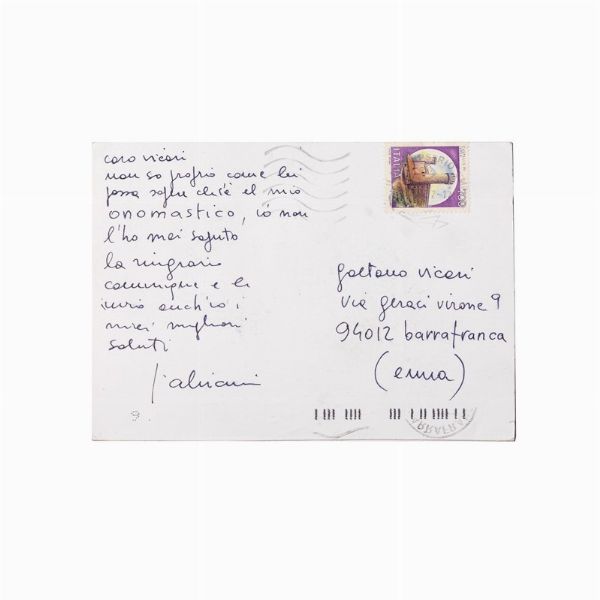 caro vicari
non so proprio come lei
possa sapere chi'è el mio
onomastico, iò non
l'ho mai saputo
la ringrazio
comunque e le
invio anch'io i
miei migliori
saluti
ITALIA
gaetano vicari
via geraci virone 9
94012 barrafranca
(enna)
9.